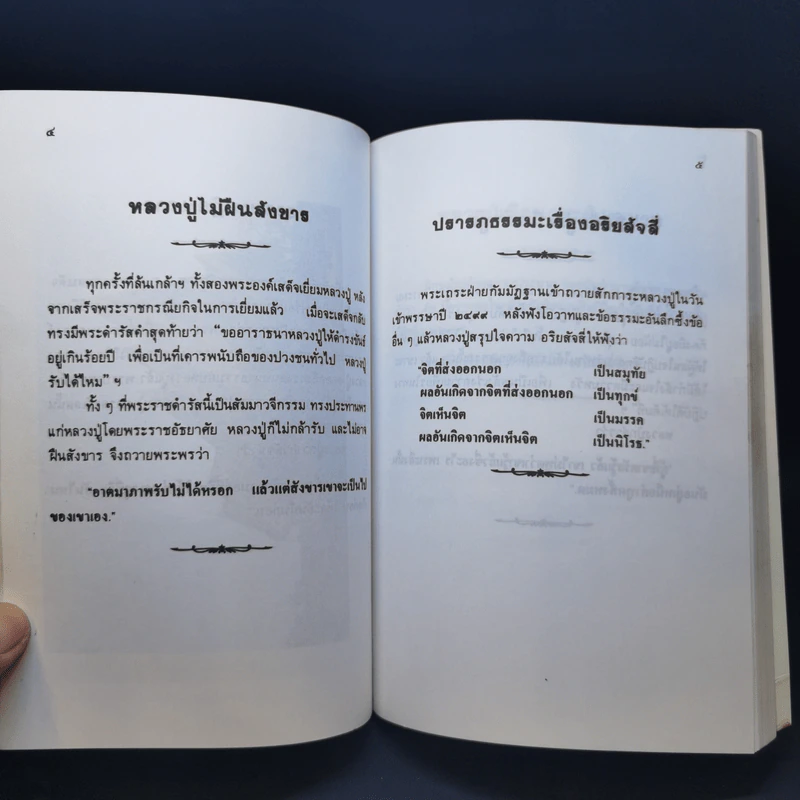 ๔
หลวงปู่ไม่ฝืนสังขาร
ทุกครั้งที่ล้นเกล้าฯ ทั้งสองพระองค์เสด็จเยี่ยมหลวงปู่ หลัง
จากเสร็จพระราชกรณียกิจในการเยี่ยมแล้ว เมื่อจะเสด็จกลับ
ทรงมีพระดำรัสคำสุดท้ายว่า “ขออาราธนาหลวงปู่ให้ดำรงขันธ์
อยู่เกินร้อยปี เพื่อเป็นที่เคารพนับถือของปวงชนทั่วไป หลวงปู่
รับได้ไหม” ฯ
ทั้ง ๆ ที่พระราชดำรัสนี้เป็นสัมมาวจีกรรม ทรงประทานพร
แก่หลวงปู่โดยพระราชอัธยาศัย หลวงปู่ก็ไม่กล้ารับ และไม่อาจ
ฝืนสังขาร จึงถวายพระพรว่า
“อาตมาภาพรับไม่ได้หรอก แล้วแต่สังขารเขาจะเป็นไป
ของเขาเอง.”
๕
ปรารภธรรมะเรื่องอริยสัจสี่
พระเถระฝ่ายกัมมัฏฐานเข้าถวายสักการะหลวงปู่ในวัน
เข้าพรรษาปี ๒๔๙๙ หลังฟังโอวาทและข้อธรรมะอันลึกซึ้งข้อ
อื่น ๆ แล้วหลวงปู่สรุปใจความ อริยสัจสี่ให้ฟังว่า
“จิตที่ส่งออกนอก เป็นสมุทัย
ผลอันเกิดจากจิตที่ส่งออกนอก เป็นทุกข์
จิตเห็นจิต เป็นมรรค
ผลอันเกิดจากจิตเห็นจิต เป็นนิโรธ.”